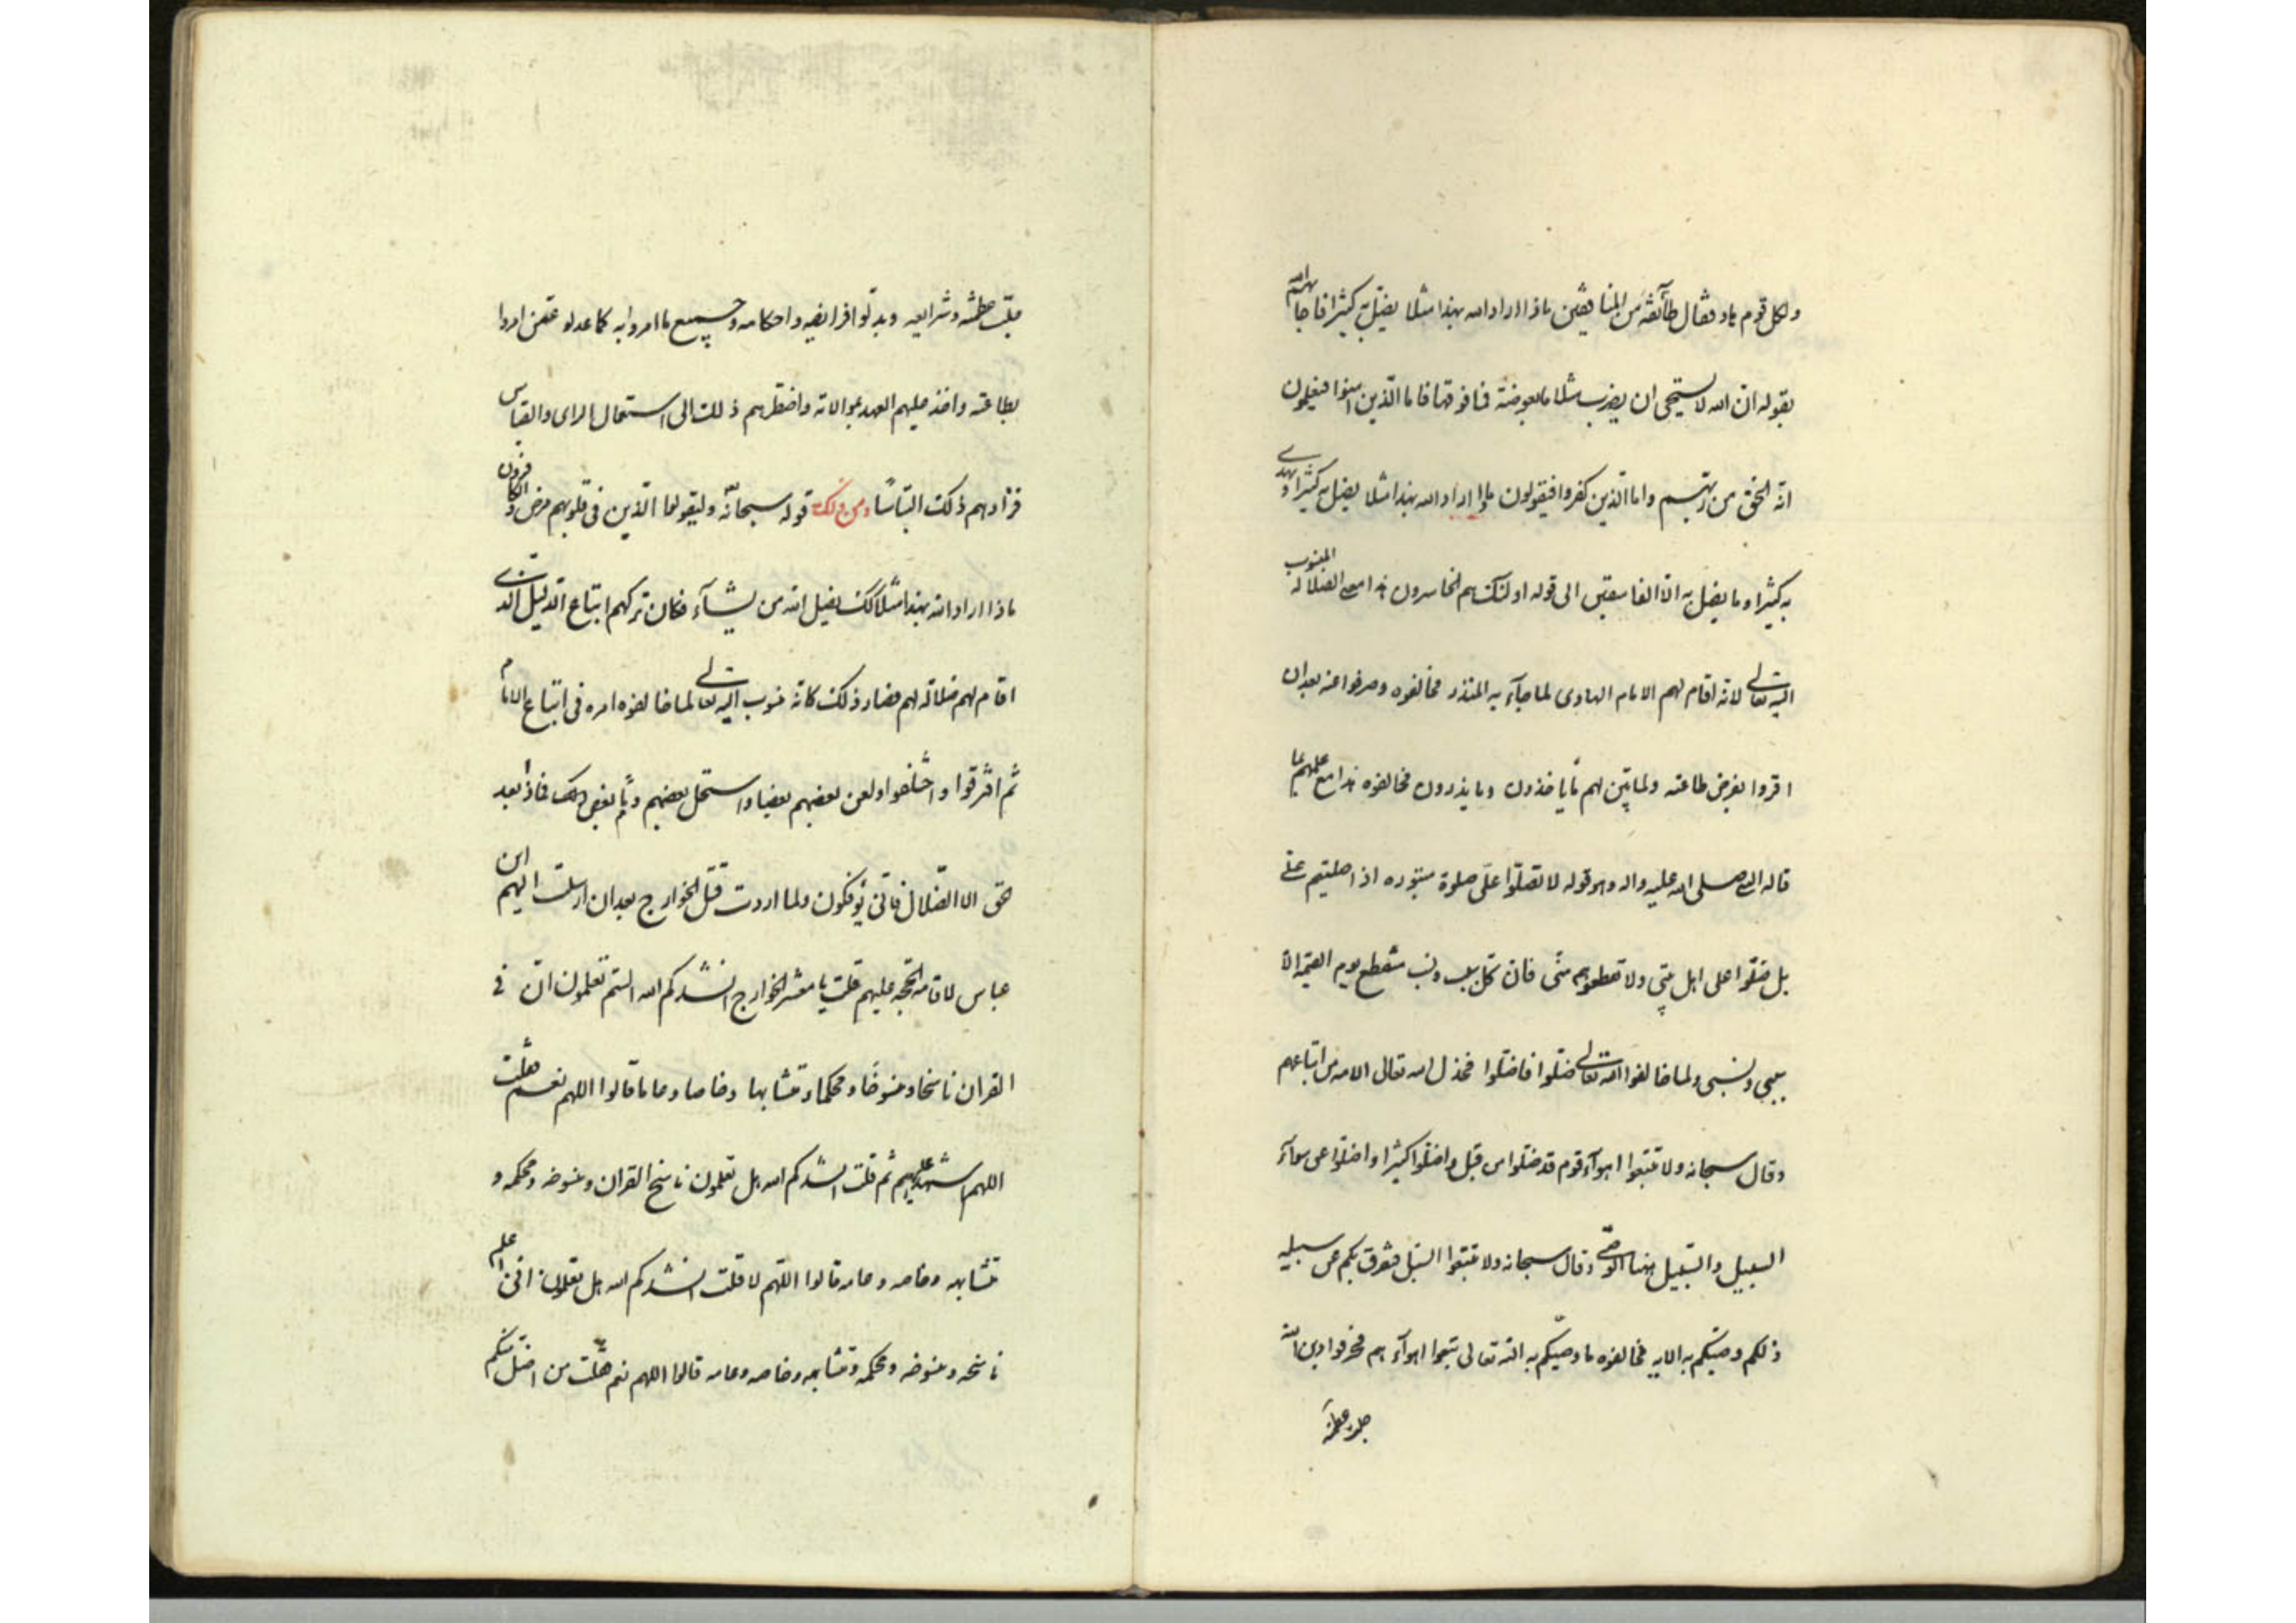 ولكل قوم هاد وقال طآئفة من المنافقين ماذا اراد الله بهذا مثلا يضل به كثيرا فاجابهم الله
بقوله ان الله لا يستحيى ان يضرب مثلا ما بعوضة فما فوقها فاما الذين امنوا فيعلمون
انه الحق من ربهم واما الذين كفروا فيقولون ماذا اراد الله بهذا مثلا يضل به كثيرا ويهدى
به كثيرا وما يضل به الا الفاسقين الى قوله اولئك هم الخاسرون هذا معنى الضلالة المنسوب
اليه تعالى لانه اقام لهم الامام الهادى لما جآء به المنذر فخالفوه وصرفوا عنه بعد ان
اقروا بفرض طاعته ولما بين لهم ما ياخذون وما يذرون فخالفوه هذا مع علمهم بما
قاله النبى صلى الله عليه واله وهو قوله لا تصلوا على صلوة مبتوره اذا صليتم على
بل صلوا على اهل بيتى ولا تقطعوهم منى فان كل سبب ونسب منقطع يوم القيمة الا
سببى ونسبى ولما خالفوا الله تعالى ضلوا فاضلوا فحذر الله تعالى الامه من اتباعهم
وقال سبحانه ولا تتبعوا اهوآء قوم قد ضلوا من قبل واضلوا كثيرا واضلوا عن سوآء
السبيل والسبيل هنا الوصى وقال سبحانه ولا تتبعوا السبل فتفرق بكم عن سبيله
ذلكم وصيكم به الايه فخالفوه ما وصيكم به الله تعالى تبعوا اهوآءهم فحرفوا دين الله
جلت عظمته
جلت عظمته وشرايعه وبدلوا فرايضه واحكامه وجميع ما امروا به كما عدلوا عمن امروا
بطاعته واخذ عليهم العهد بموالاته واضطرهم ذلك الى استعمال الراى والقياس
فزادهم ذلك التباسا ومن ذلك قوله سبحانه وليقول الذين فى قلوبهم مرض والكافرون
ماذا اراد الله بهذا مثلا كذلك يضل الله من يشآء فكان تركهم اتباع الدليل الذى
اقام لهم ضلالة لهم فصار ذلك كانه منسوب اليه تعالى لما خالفوه امره فى اتباع الامام
ثم افترقوا واختلفوا ولعن بعضهم بعضا واستحل بعضهم دمآء بعض ذلك فماذا بعد
الحق الا الضلال فانى يؤفكون ولما اردت قتل الخوارج بعد ان ارسلت اليهم ابن
عباس لاقامة الحجة عليهم قلت يا معشر الخوارج انشدكم الله الستم تعلمون ان فى
القران ناسخا ومنسوخا ومحكما ومتشابها وخاصا وعاما قالوا اللهم نعم فقلت
اللهم اشهد عليهم ثم قلت انشدكم الله هل تعلمون ناسخ القران ومنسوخه ومحكمه و
متشابهه وخاصه وعامه قالوا اللهم لا قلت انشدكم الله هل تعلمون انى اعلم
ناسخه ومنسوخه ومحكمه ومتشابهه وخاصه وعامه قالوا اللهم نعم فقلت من اضل منكم